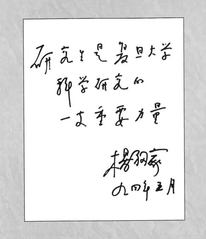 研究生是复旦大学
科学研究的
一支重要力量
楊福家
九四年五月